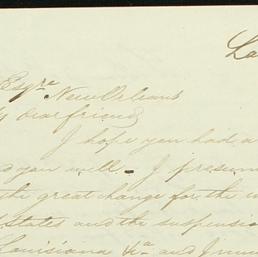 La
Esqre New Orleans
My dear friend
I hope you had a
you well - I presum
the great change for the
states and the suspensio
Louisiana &a and